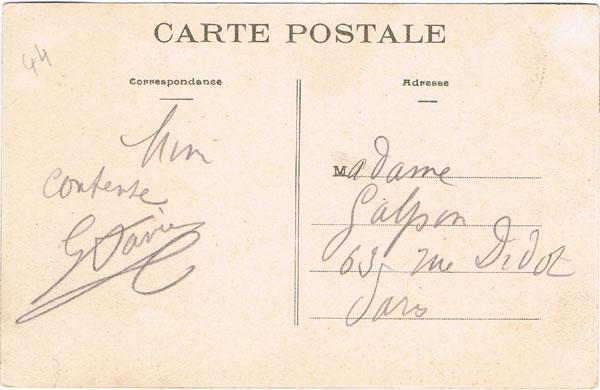 CARTE POSTALE
44
Correspondance
Mimi
contente
Adresse
Madame
Galpson
63 rue Didot
Paris